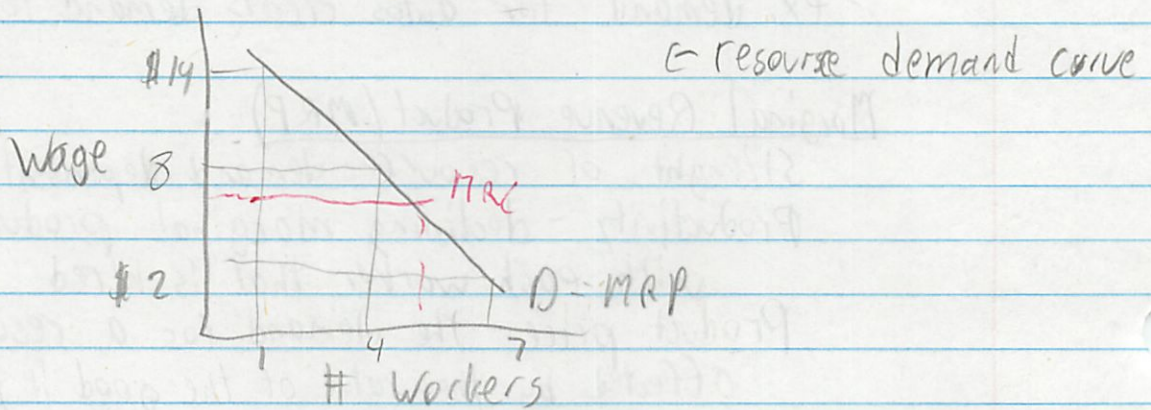 ← resourse demand curve
$14
Wage
8
MRC
$2
D=MRP
1 4 7
# Workers